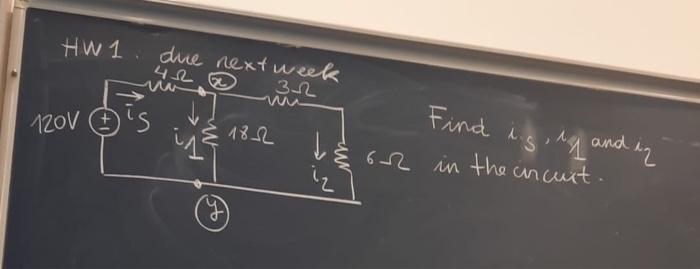 HW1. due next week
4Ω
x
3Ω
120V
+
-
is
i1
18Ω
i2
6Ω
y
Find is, i1 and i2
in the circuit.